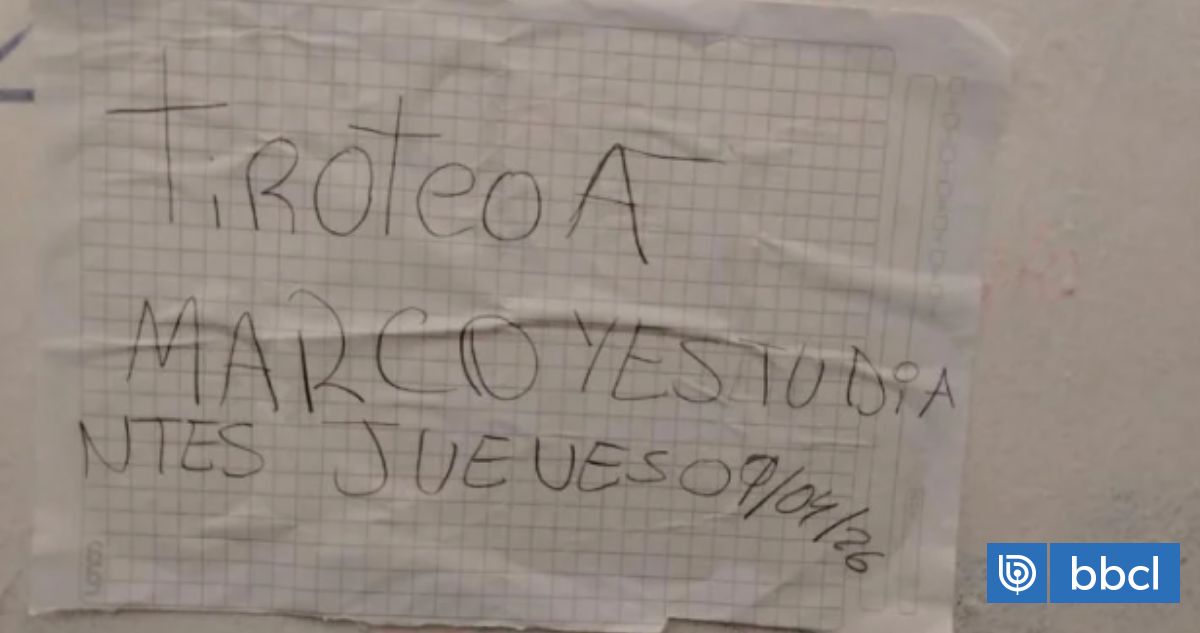 TIROTEO A
MARCO Y ESTUDIA
NTES JUEVES 09/04/26
bbcl